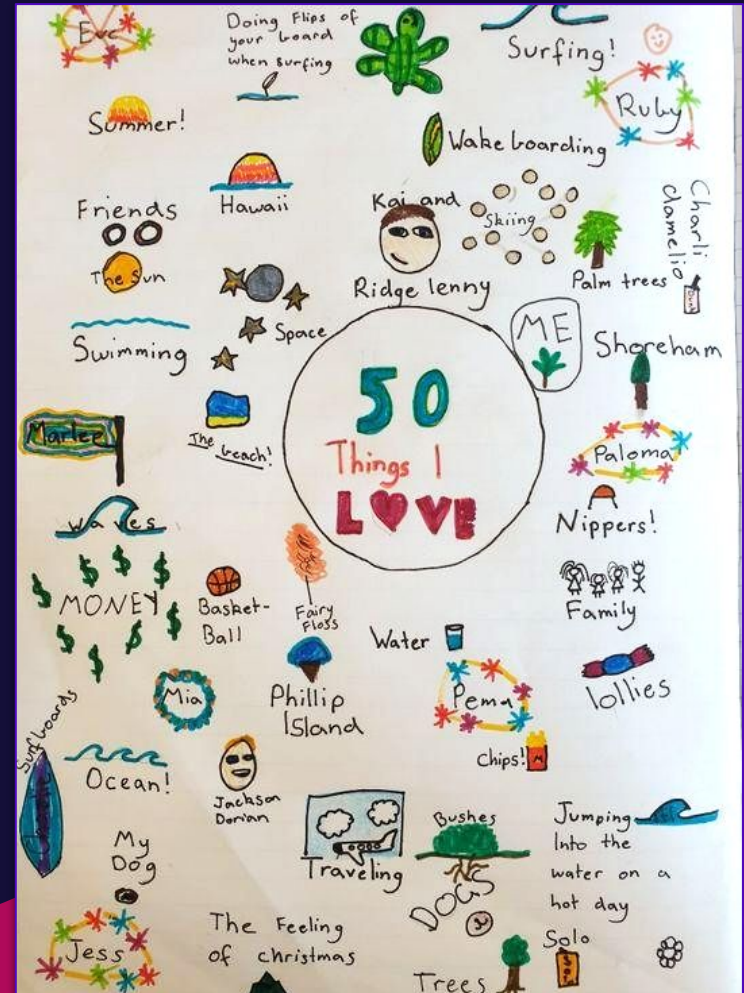 Eve
Doing Flips of
your board
when surfing
Surfing!
Ruby
Summer!
Wake boarding
Friends
Hawaii
Kai and
Ridge lenny
Skiing
Palm trees
Charli
damelio
Dunk
The Sun
Space
Swimming
ME
Shoreham
50
Things I
LOVE
Marlee
The beach!
Paloma
Nippers!
waves
MONEY
$ $ $ $ $ $ $ $
Basket-
Ball
Fairy
Floss
Family
Water
Mia
Phillip
Island
Pema
lollies
Surfboards
Ocean!
Chips!
M
Jackson
Dorian
Traveling
Bushes
Jumping
Into the
water on a
hot day
My
Dog
DOGS
Jess
The Feeling
of christmas
Trees
Solo
Solo